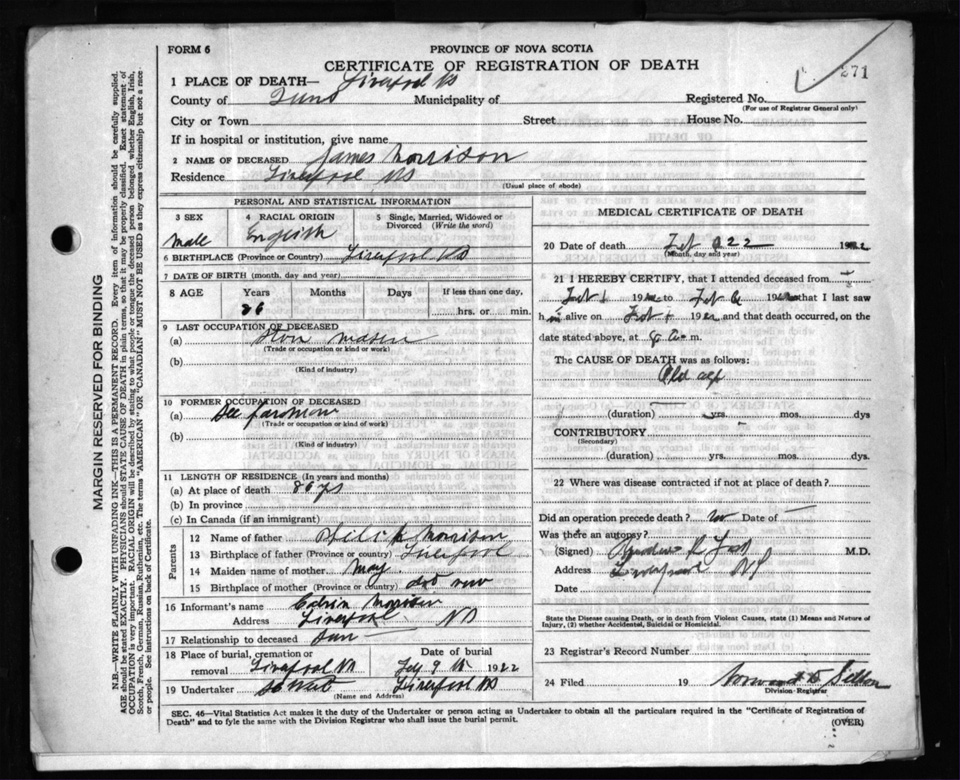 FORM 6
PROVINCE OF NOVA SCOTIA
CERTIFICATE OF REGISTRATION OF DEATH
271
1 PLACE OF DEATH— Liverpool NS
County of Municipality of Registered No.
(For use of Registrar General only)
City or Town Street House No.
If in hospital or institution, give name
2 NAME OF DECEASED James Morrison
Residence Liverpool NS
(Usual place of abode)
MARGIN RESERVED FOR BINDING
N.B.—WRITE PLAINLY WITH UNFADING INK—THIS IS A PERMANENT RECORD. Every item of information should be carefully supplied.
AGE should be stated EXACTLY. PHYSICIANS should STATE CAUSE OF DEATH in plain terms, so that it may be properly classified. Exact statement of
OCCUPATION is very important. RACIAL ORIGIN will be described by stating to what people or tongue the deceased person belonged whether English, Irish,
Scotch, French, German, Russian, Ruthenian, etc. The terms "AMERICAN" OR "CANADIAN" MUST NOT BE USED as they express citizenship but not a race
or people. See instructions on back of Certificate.
PERSONAL AND STATISTICAL INFORMATION
3 SEX
Male
4 RACIAL ORIGIN
English
5 Single, Married, Widowed or
Divorced (Write the word)
6 BIRTHPLACE (Province or Country) Liverpool NS
7 DATE OF BIRTH (month, day and year)
8 AGE Years Months Days If less than one day,
86 hrs. or min.
9 LAST OCCUPATION OF DECEASED
(a)
(Trade or occupation or kind or work)
(b)
(Kind of industry)
10 FORMER OCCUPATION OF DECEASED
(a)
(Trade or occupation or kind of work)
(b)
(Kind of industry)
11 LENGTH OF RESIDENCE (In years and months)
(a) At place of death 86 yrs
(b) In province
(c) In Canada (if an immigrant)
Parents
12 Name of father Morrison
13 Birthplace of father (Province or country) Liverpool
14 Maiden name of mother May
15 Birthplace of mother (Province or country)
16 Informant's name Morrison
Address Liverpool NS
17 Relationship to deceased Son
18 Place of burial, cremation or Date of burial
removal Liverpool NS 9 1922
19 Undertaker Liverpool NS
(Name and Address)
MEDICAL CERTIFICATE OF DEATH
20 Date of death Feb
(Month, day and year)
21 I HEREBY CERTIFY, that I attended deceased from
Feb 1 19 to Feb 6 19 that I last saw
h alive on Feb 19 and that death occurred, on the
date stated above, at m.
The CAUSE OF DEATH was as follows:
Old age
(duration) yrs. mos. dys
CONTRIBUTORY
(Secondary)
(duration) yrs. mos. dys
22 Where was disease contracted if not at place of death?
Did an operation precede death? no Date of —
Was there an autopsy?
(Signed) M.D.
Address Liverpool NS
Date
State the Disease causing Death, or in death from Violent Causes, state (1) Means and Nature of
Injury, (2) whether Accidental, Suicidal or Homicidal.
23 Registrar's Record Number
24 Filed 19
Division-Registrar
SEC. 46—Vital Statistics Act makes it the duty of the Undertaker or person acting as Undertaker to obtain all the particulars required in the "Certificate of Registration of
Death" and to fyle the same with the Division Registrar who shall issue the burial permit.
(OVER)